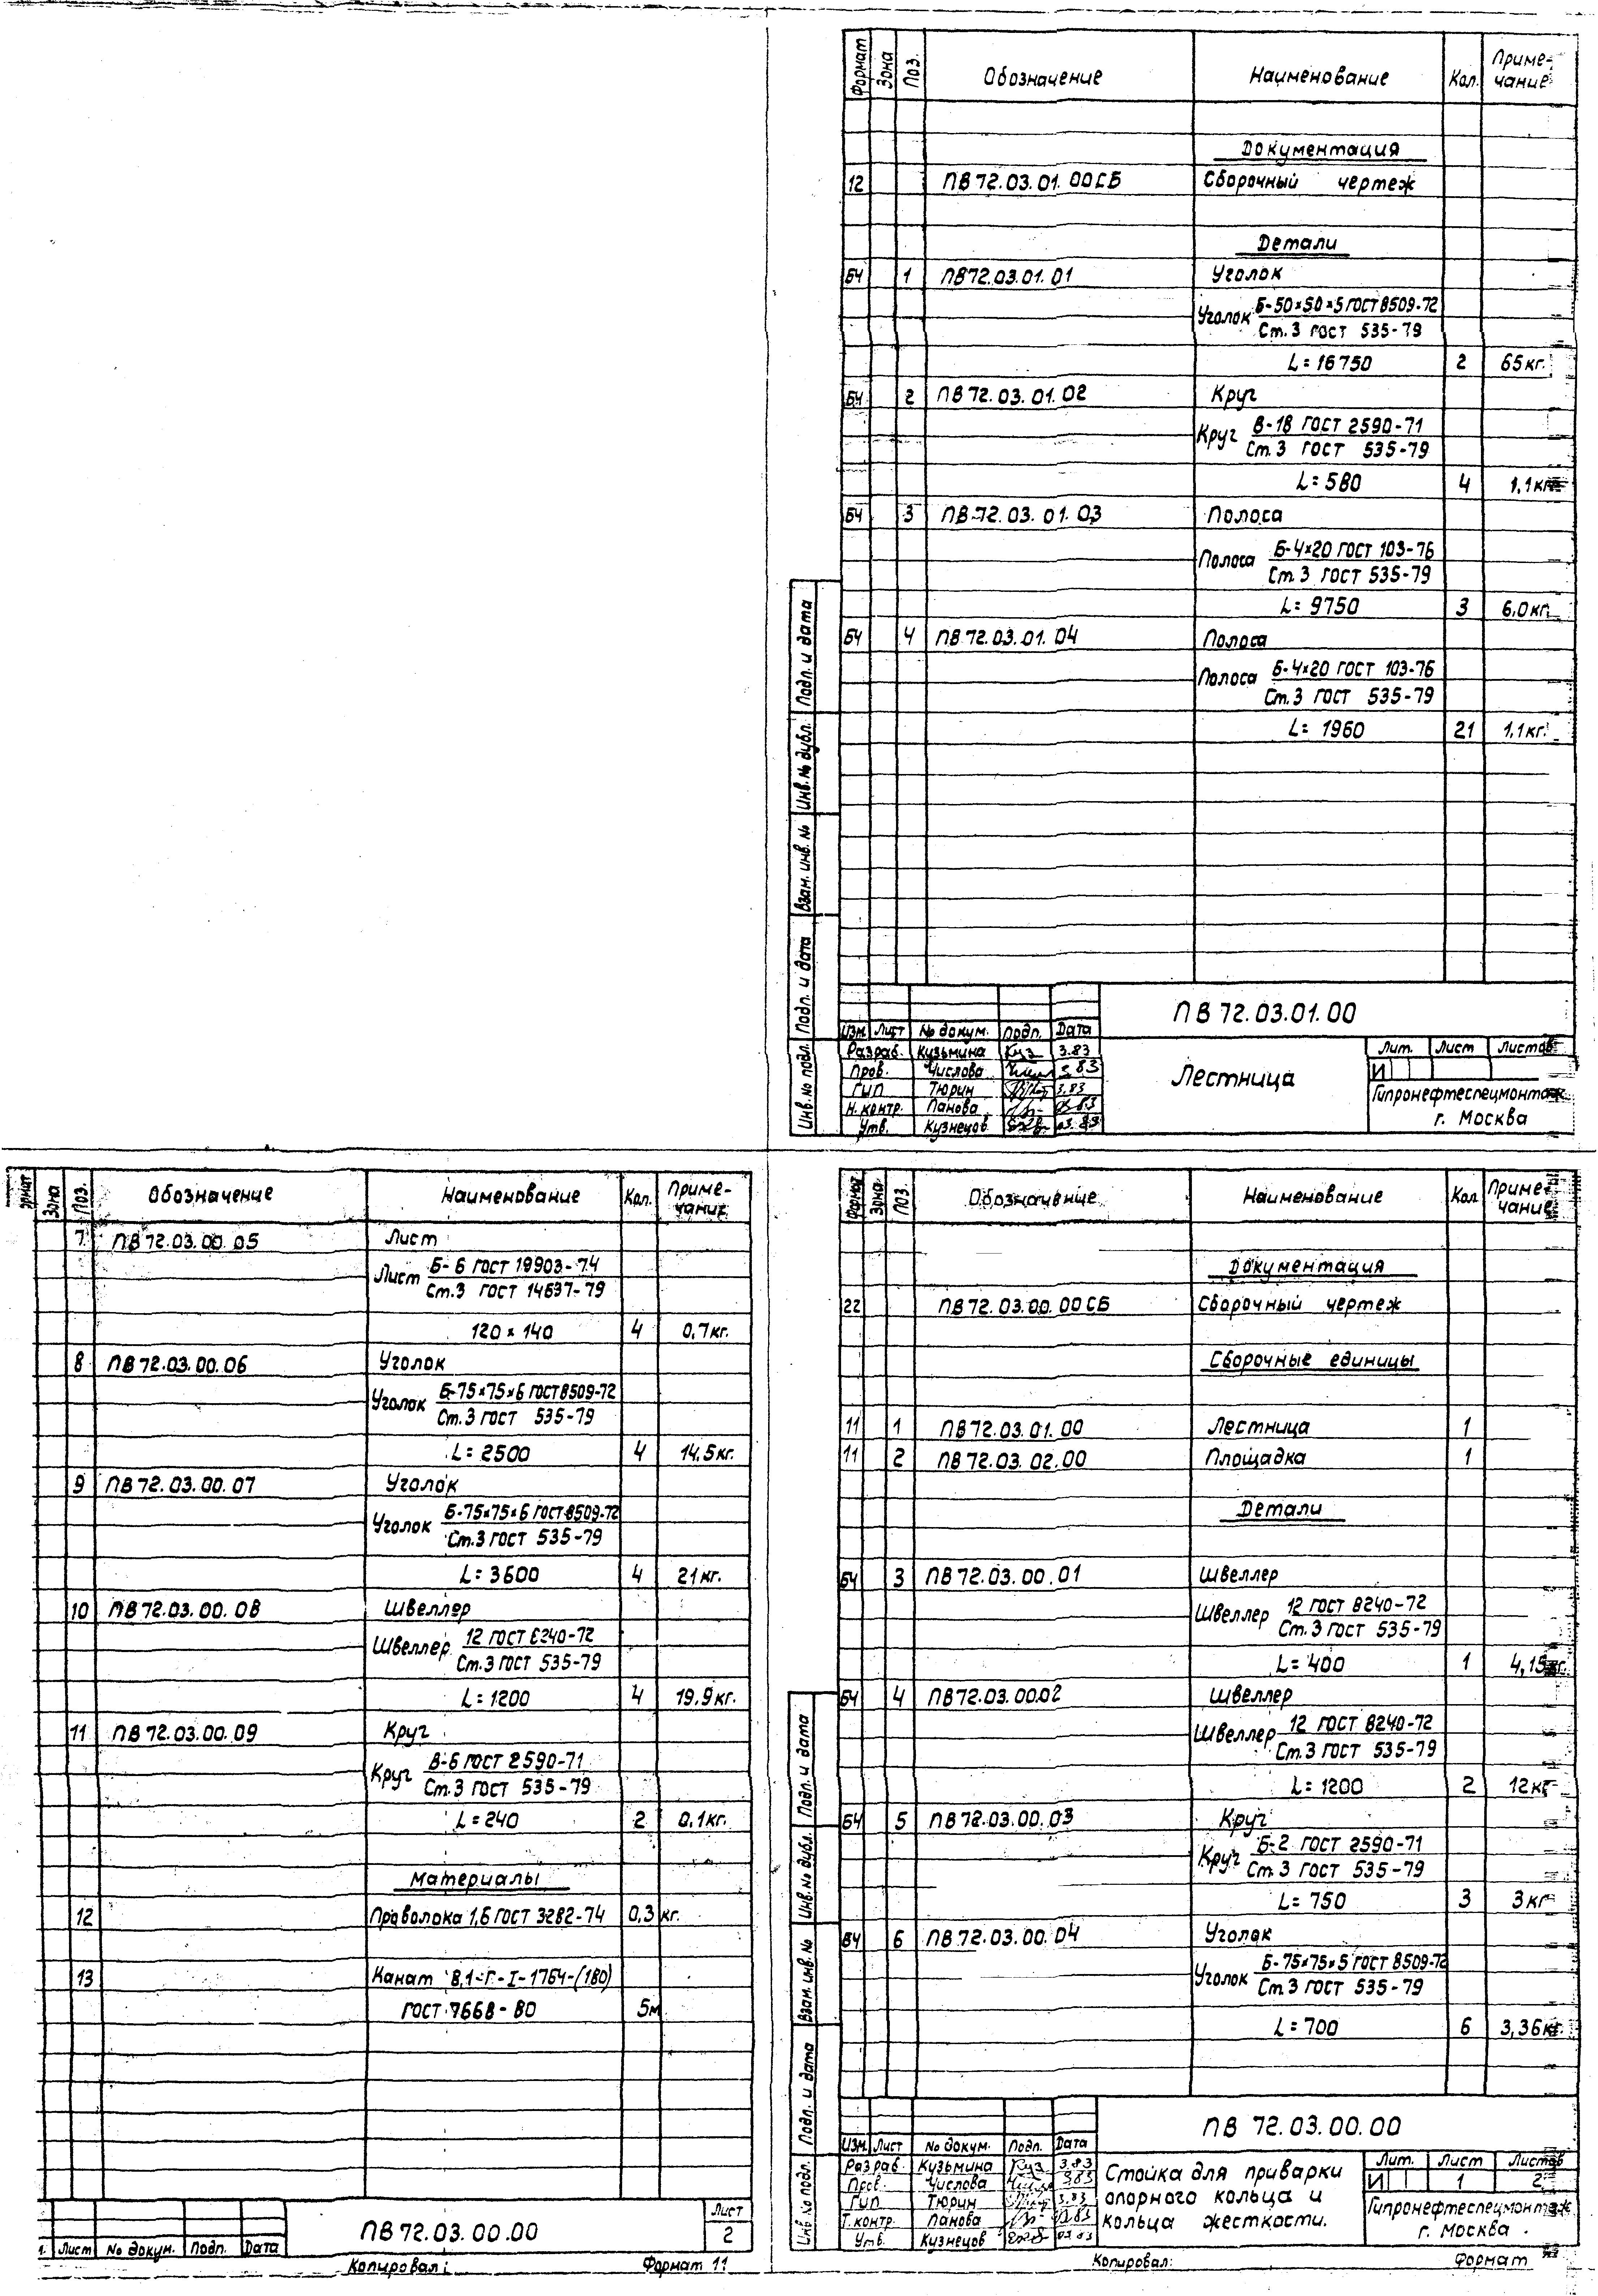 Формат Зона Поз. Обозначение Наименование Кол. Приме-
чание
Документация
12 ПВ 72.03.01.00СБ Сборочный чертеж
Детали
БЧ 1 ПВ72.03.01.01 Уголок
Уголок Б-50×50×5 ГОСТ 8509-72
Ст.3 ГОСТ 535-79
L=16750 2 65кг.
БЧ 2 ПВ 72.03.01.02 Круг
Круг В-18 ГОСТ 2590-71
Ст.3 ГОСТ 535-79
L=580 4 1,1кг
БЧ 3 ПВ 72.03.01.03 Полоса
Полоса Б-4×20 ГОСТ 103-76
Ст.3 ГОСТ 535-79
L=9750 3 6,0кг.
БЧ 4 ПВ 72.03.01.04 Полоса
Полоса Б-4×20 ГОСТ 103-76
Ст.3 ГОСТ 535-79
L=1960 21 1,1кг.
Подп. и дата
Инв. № дубл.
Взам. инв. №
Подп. и дата
Инв. № подл.
ПВ 72.03.01.00
Изм. Лист № докум. Подп. Дата
Разраб. Кузьмина Куз 3.83
Пров. Числова 3.83
ГИП Тюрин 3.83
Н. контр. Панова 03.83
Утв. Кузнецов 03.83
Лестница
Лит. Лист Листов
И
Гипронефтеспецмонтаж
г. Москва
Формат Зона Поз. Обозначение Наименование Кол. Приме-
чание
7 ПВ 72.03.00.05 Лист
Лист Б-6 ГОСТ 19903-74
Ст.3 ГОСТ 14637-79
120×140 4 0,7кг.
8 ПВ 72.03.00.06 Уголок
Уголок Б-75×75×6 ГОСТ 8509-72
Ст.3 ГОСТ 535-79
L=2500 4 14,5кг.
9 ПВ 72.03.00.07 Уголок
Уголок Б-75×75×6 ГОСТ 8509-72
Ст.3 ГОСТ 535-79
L=3600 4 21кг.
10 ПВ 72.03.00.08 Швеллер
Швеллер 12 ГОСТ 8240-72
Ст.3 ГОСТ 535-79
L=1200 4 19,9кг.
11 ПВ 72.03.00.09 Круг
Круг В-6 ГОСТ 2590-71
Ст.3 ГОСТ 535-79
L=240 2 0,1кг.
Материалы
12 Проволока 1,6 ГОСТ 3282-74 0,3 кг.
13 Канат 8,1-Г-I-1764-(180)
ГОСТ 7668-80 5м
Лист № докум. Подп. Дата
ПВ 72.03.00.00
Лист
2
Копировал: Формат 11
Формат Зона Поз. Обозначение Наименование Кол. Приме-
чание
Документация
22 ПВ 72.03.00.00СБ Сборочный чертеж
Сборочные единицы
11 1 ПВ 72.03.01.00 Лестница 1
11 2 ПВ 72.03.02.00 Площадка 1
Детали
БЧ 3 ПВ 72.03.00.01 Швеллер
Швеллер 12 ГОСТ 8240-72
Ст.3 ГОСТ 535-79
L=400 1 4,15кг.
БЧ 4 ПВ 72.03.00.02 Швеллер
Швеллер 12 ГОСТ 8240-72
Ст.3 ГОСТ 535-79
L=1200 2 12кг
БЧ 5 ПВ 72.03.00.03 Круг
Круг Б-2 ГОСТ 2590-71
Ст.3 ГОСТ 535-79
L=750 3 3кг
БЧ 6 ПВ 72.03.00.04 Уголок
Уголок Б-75×75×5 ГОСТ 8509-72
Ст.3 ГОСТ 535-79
L=700 6 3,36кг.
Подп. и дата
Инв. № дубл.
Взам. инв. №
Подп. и дата
Инв № подл.
ПВ 72.03.00.00
Изм. Лист № докум. Подп. Дата
Разраб Кузьмина Куз 3.83
Пров. Числова 3.83
ГИП Тюрин 3.83
Т. контр. Панова 03.83
Утв. Кузнецов 03.83
Стойка для приварки
опорного кольца и
кольца жесткости.
Лит. Лист Листов
И 1 2
Гипронефтеспецмонтаж
г. Москва.
Копировал: Формат